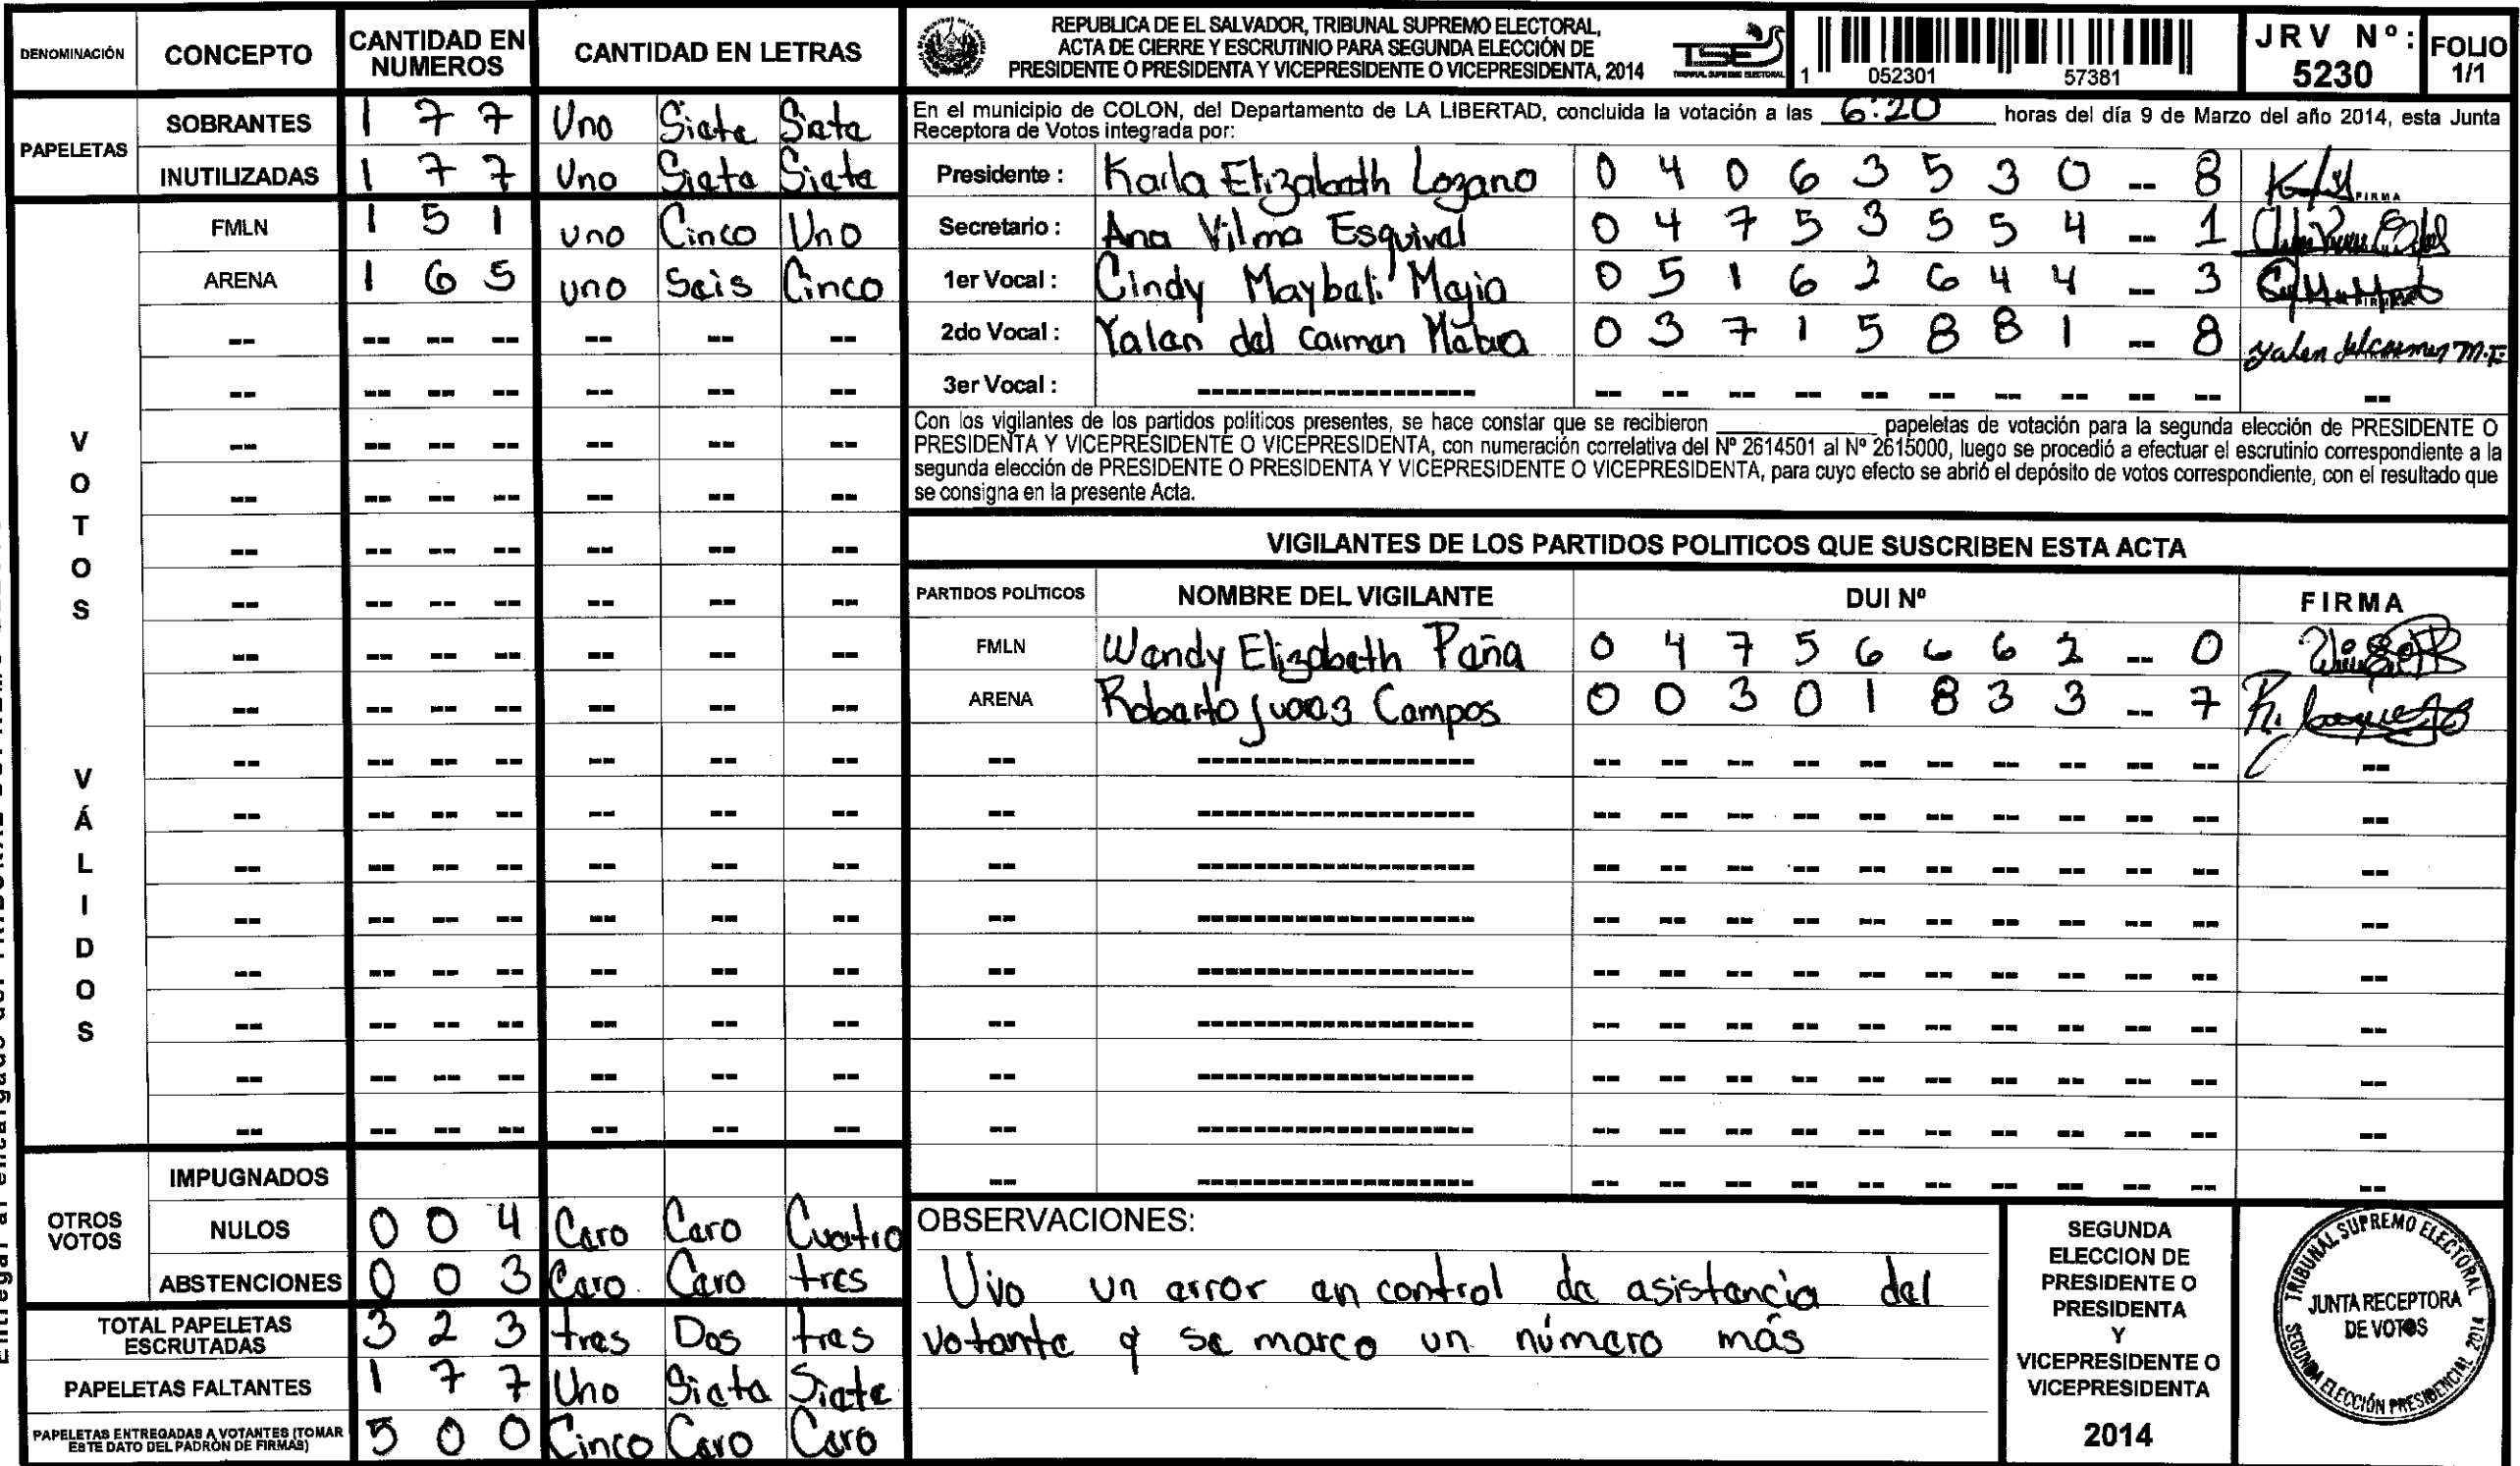 DENOMINACIÓN CONCEPTO CANTIDAD EN NUMEROS CANTIDAD EN LETRAS
PAPELETAS
SOBRANTES 1 7 7 Uno Siete Siete
INUTILIZADAS 1 7 7 Uno Siete Siete
VOTOS VÁLIDOS
FMLN 1 5 1 uno Cinco Uno
ARENA 1 6 5 uno Seis Cinco
OTROS VOTOS
IMPUGNADOS
NULOS 0 0 4 Cero Cero Cuatro
ABSTENCIONES 0 0 3 Cero Cero tres
TOTAL PAPELETAS ESCRUTADAS 3 2 3 tres Dos tres
PAPELETAS FALTANTES 1 7 7 Uno Siete Siete
PAPELETAS ENTREGADAS A VOTANTES (TOMAR ESTE DATO DEL PADRÓN DE FIRMAS) 5 0 0 Cinco Cero Cero
REPUBLICA DE EL SALVADOR, TRIBUNAL SUPREMO ELECTORAL,
ACTA DE CIERRE Y ESCRUTINIO PARA SEGUNDA ELECCIÓN DE
PRESIDENTE O PRESIDENTA Y VICEPRESIDENTE O VICEPRESIDENTA, 2014
TSE
1 052301 57381
JRV Nº: 5230
FOLIO 1/1
En el municipio de COLON, del Departamento de LA LIBERTAD, concluida la votación a las 6:20 horas del día 9 de Marzo del año 2014, esta Junta
Receptora de Votos integrada por:
Presidente : Karla Elizabeth Lozano 0 4 0 6 3 5 3 0 -- 8
FIRMA
Secretario : Ana Vilma Esquivel 0 4 7 5 3 5 5 4 -- 1
1er Vocal : Cindy Maybeli Mejia 0 5 1 6 2 6 4 4 -- 3
2do Vocal : Yalen del Carmen 0 3 7 1 5 8 8 1 -- 8 Yalen del carmen M.F
3er Vocal :
Con los vigilantes de los partidos políticos presentes, se hace constar que se recibieron ____ papeletas de votación para la segunda elección de PRESIDENTE O
PRESIDENTA Y VICEPRESIDENTE O VICEPRESIDENTA, con numeración correlativa del Nº 2614501 al Nº 2615000, luego se procedió a efectuar el escrutinio correspondiente a la
segunda elección de PRESIDENTE O PRESIDENTA Y VICEPRESIDENTE O VICEPRESIDENTA, para cuyo efecto se abrió el depósito de votos correspondiente, con el resultado que
se consigna en la presente Acta.
VIGILANTES DE LOS PARTIDOS POLITICOS QUE SUSCRIBEN ESTA ACTA
PARTIDOS POLÍTICOS NOMBRE DEL VIGILANTE DUI Nº FIRMA
FMLN Wendy Elizabeth Peña 0 4 7 5 6 6 6 2 -- 0
ARENA Roberto Campos 0 0 3 0 1 8 3 3 -- 7
OBSERVACIONES:
Uvo un error en control de asistencia del
votante y se marco un número más
SEGUNDA
ELECCION DE
PRESIDENTE O
PRESIDENTA
Y
VICEPRESIDENTE O
VICEPRESIDENTA
2014
TRIBUNAL SUPREMO ELECTORAL
JUNTA RECEPTORA
DE VOTOS
SEGUNDA ELECCIÓN PRESIDENCIAL 2014